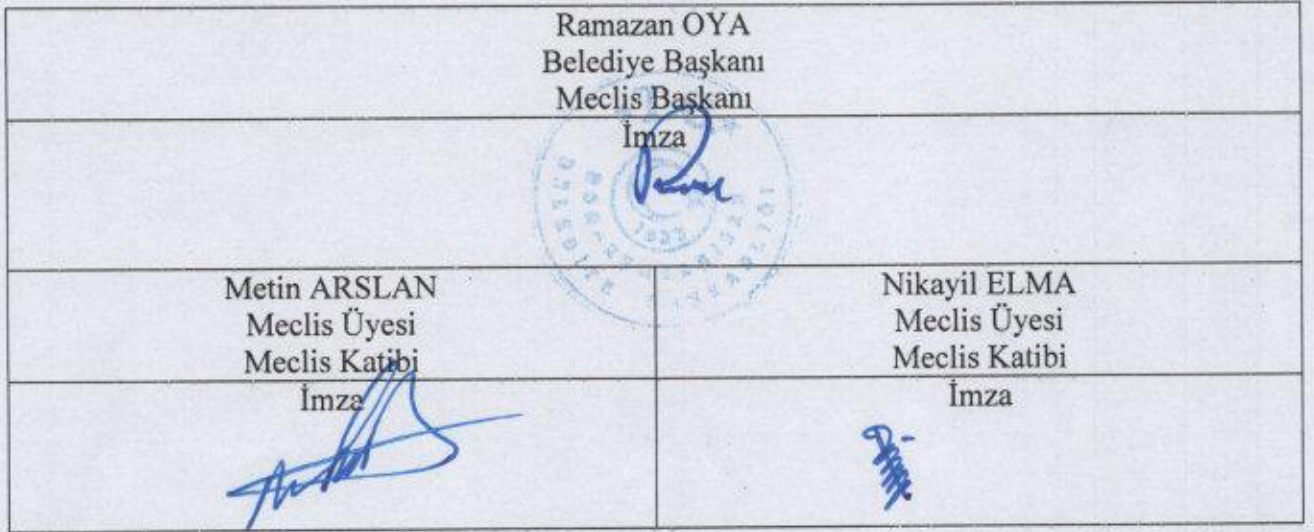 Ramazan OYA
Belediye Başkanı
Meclis Başkanı
İmza
1922
Metin ARSLAN
Meclis Üyesi
Meclis Katibi
İmza
Nikayil ELMA
Meclis Üyesi
Meclis Katibi
İmza